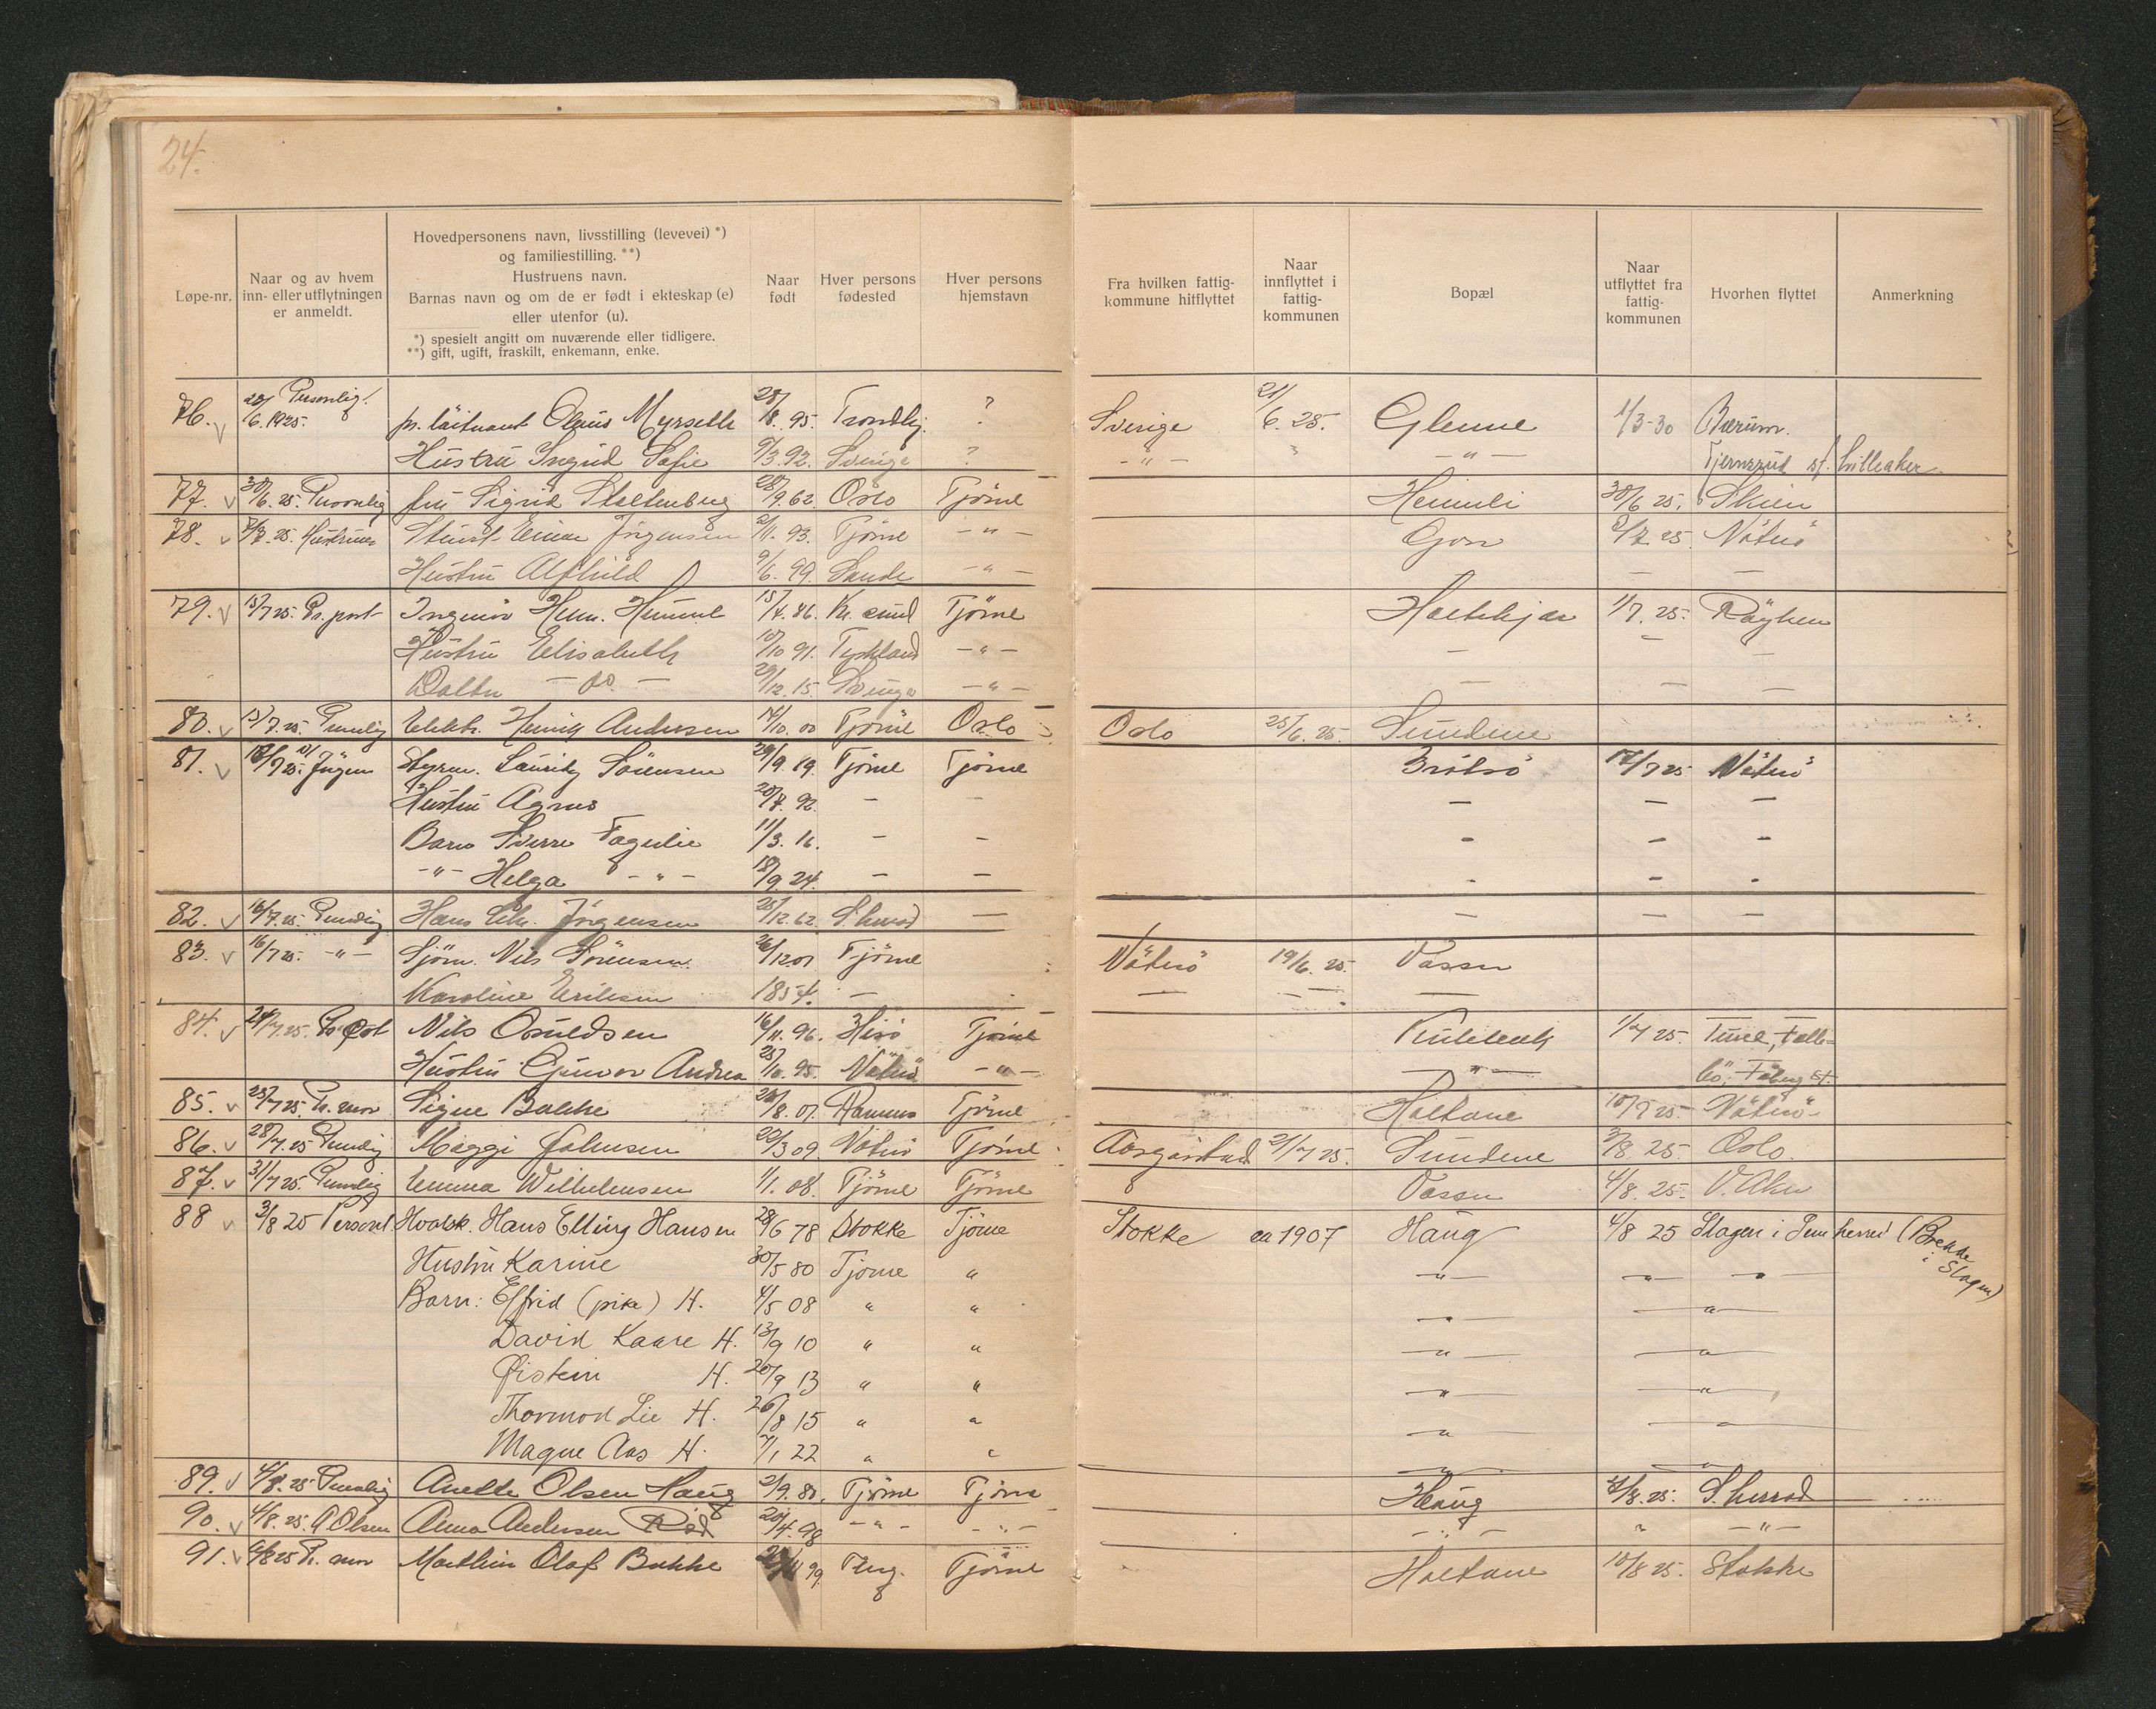 24.
Løpe-nr.
Naar og av hvem
inn- eller utflytningen
er anmeldt.
Hovedpersonens navn, livsstilling (levevei) *)
og familiestilling. **)
Hustruens navn.
Barnas navn og om de er født i ekteskap (e)
eller utenfor (u).
*) spesielt angitt om nuværende eller tidligere.
**) gift, ugift, fraskilt, enkemann, enke.
Naar
født
Hver persons
fødested
Hver persons
hjemstavn
Fra hvilken fattig-
kommune hitflyttet
Naar
innflyttet i
fattig-
kommunen
Bopæl
Naar
utflyttet fra
fattig-
kommunen
Hvorhen flyttet
Anmerkning
76. Personlig. 6.1925. Olaus Myrseth 28/8. 95. Trondhj. ? Sverige 21/6. 25. Glenne 1/3-30 Bærum.
Hustrü Ingrid Sofie 9/3.92. Sverige ? -"- " -"-
77. 30/6.25. Personlig frü Sigrid Stoltenberg 28/9.62 Oslo Tjöme Heimli 30/6 25. Skien
78. Einar Jörgensen 2/11. 93. Tjöme -"- Gon 2/7.25. Nöterö
Hustrü Alfhild 9/6. 99. Sande -"- — —
79. 15/7 25. Pr. post Ingeniör Herm. Hümmel 15/4. 86. Kr. sünd Tjöme Holtekjær 1/7. 25. Röyken
Hüstrü Elisabeth 10/10 91. Tyskland -"- — — —
Datter — do. — 29/12. 15. Sverige -"- — — —
80. 15/7 25. Personlig Elektr. Henrik Andersen 14/10. 00 Tjöme Oslo Oslo 25/6. 25. Sündene
81. Styrm. Lauritz Sörensen 29/9. 89. Tjöme Tjöme Brötsö 17/7 25 Nöterö
Hüstrü Agnes 20/7. 92. — — — — —
Barn Sverre Fagerlie 11/3. 16. — — — — —
-"- Helga -"- 18/9. 24. — — — — —
82. 16/7. 25. Personlig Hans Chr. Jörgensen 25/12. 62. S.herred — — — —
83. 16/7 25. -"- Sjöm. Nils Sörensen 26/12 01 Tjöme Nöterö 19/6. 25. Vassen
Karoline Eriksen 1854. — — — —
84. 24/7. 25. Pr. Post Nils Osüldsen 16/11. 96. Hisö Tjöme 1/7 25.
Hüstrü Günvor Andrea 25/10. 95. Nöterö -"- -"-
85. 25/7 25. Pr. mor Signe Bakke 26/8. 01. Ramnes Tjöme Holtane 10/7 25 Nöterö
86. 28/7. 25 Personlig Maggi Johnsen 22/3 09. Nöterö Tjöme Aasgaardstrand 21/7 25. Sündene 3/8. 25. Oslo.
87. 31/7 25. Personlig Emma Wilhelmsen 1/1. 08. Tjöme Tjöme Vassen 4/8. 25. V. Aker
88 3/8 25 Personl Hvalf. Hans Elling Hansen 28/6 78 Stokke Tjöme Stokke ca 1907 Haug 4/8 25 Slagen i Sem herred (Brekke
i Slagen)
Hustru Karine 30/5 80 Tjöme " -"- -"- -"-
Barn: Elfrid (pike) H. 4/5 08 " " -"- -"-
David Kaare H. 13/9 10 " " -"- -"-
Øistein H. 20/9 13 " " -"- -"-
Thormod Lie H. 26/8 15 " " -"- -"-
Magne Aas H. 7/1 22 " " -"- -"-
89. 4/8. 25. Personlig Anette Olsen Haug 2/9. 80. Tjöme Tjöme Haug 4/8. 25. S. herred
90. 4/8. 25. A Olsen Anna Andersen Röd 20/4. 98 -"- -"- -"- " -"-
91. 4/8 25 Pr. mor Olaf Bakke 99. Tbrg. Tjöme Holtane 10/8 25. Stokke